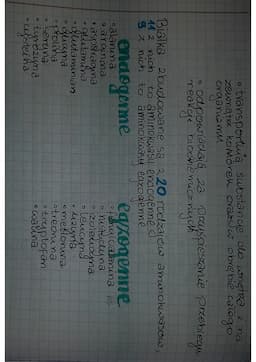 • transportują substancje do wnętrza i na
zewnątrz komórek oraz w obrębie całego
organizmu
• odpowiadają za przyspieszanie przebiegu
reakcji biochemicznych
Białka zbudowane są z 20 rodzajów aminokwasów,
11 z nich to aminokwasy endogenne
9 z nich to aminokwasy egzogenne
endogenne
• alanina
• arginina
• asparagina
• glutamina
• glutaminian
• glicyna
• prolina
• seryna
• tyrozyna
• cysteina
egzogenne
• fenyloalanina
• histydyna
• izoleucyna
• leucyna
• lizyna
• metionina
• treonina
• tryptofan
• walina